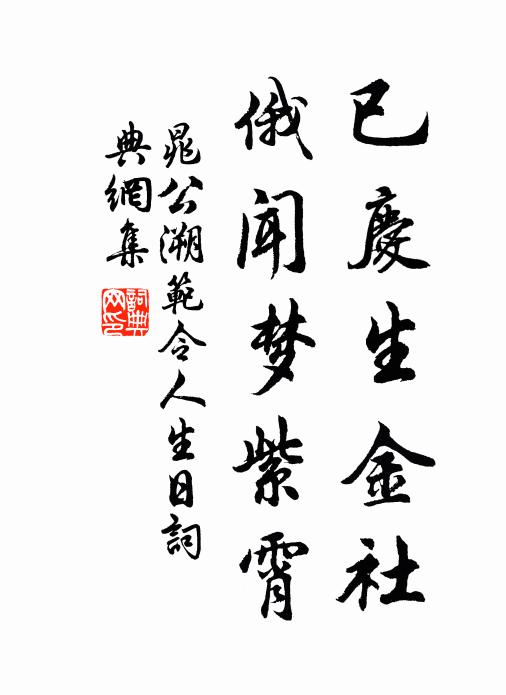 已慶生金社
俄闻梦紫霄
晁公溯範令人生日詞
典網集
詞典網印